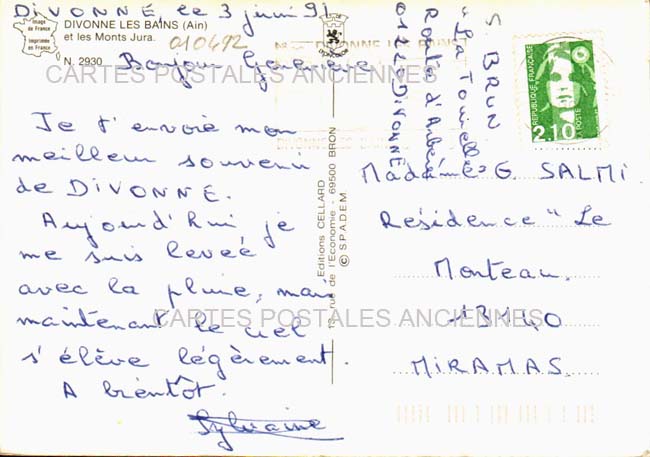 DIVONNE le 3 juin 91
Image de France
Imprimée en France
DIVONNE LES BAINS (Ain)
et les Monts Jura.
010492
N. 2930
Bonjour Geneviève
CARTES POSTALES ANCIENNES
Je t'envoie mon
meilleur souvenir
de DIVONNE.
Aujourd'hui, je
me suis leveé
avec la pluie, mais
maintenant le ciel
s'élève légèrement.
A bientôt.
Sylvaine
CARTES POSTALES ANCIENNES
Editions CELLARD
rue de l'Economie - 69500 BRON
© SPADEM
S BRUN
Route d'
01220 DIVONNE
REPUBLIQUE FRANÇAISE
LA POSTE
2,10
Madame G. SALMI
Résidence "Le
Monteau.
13140
MIRAMAS.